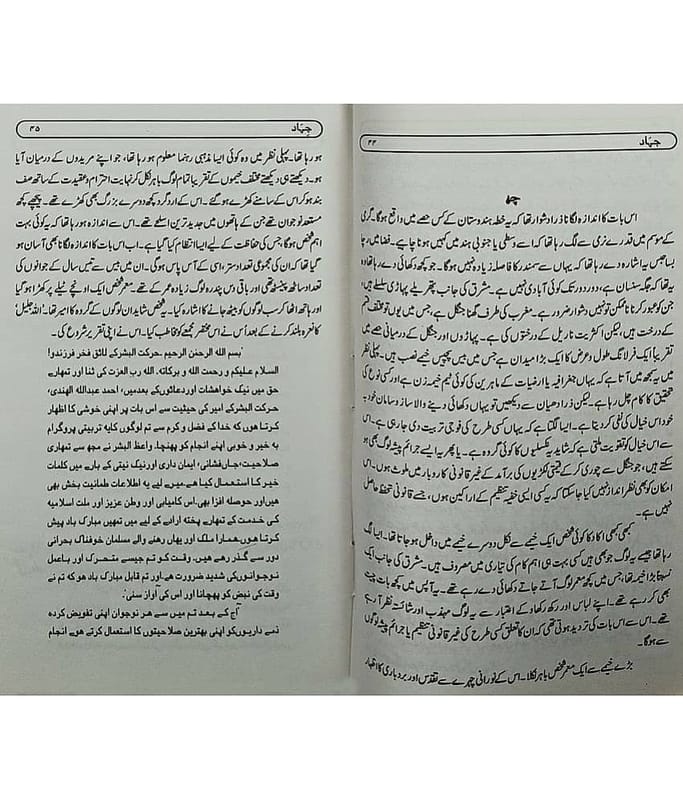 جہاد
۴۴
اس بات کا اندازہ لگانا ذرا دشوار تھا کہ یہ خطہ ہندوستان کے کس حصے میں واقع ہوگا۔ گرمی
کے موسم میں قدرے نرمی سے لگ رہا تھا کہ اسے وسطی یا جنوبی ہند میں کہیں ہونا چاہیے۔ فضا میں رچا
بسا حبس یہ اشارہ دے رہا تھا کہ یہاں سے سمندر کا فاصلہ زیادہ نہیں ہوگا۔ جو کچھ دکھائی دے رہا تھا وہ
یہ تھا کہ سنسان ہے، دور دور تک کوئی آبادی نہیں ہے۔ مشرق کی جانب پتھریلے پہاڑی سلسلے ہیں،
جن کو عبور کرنا ناممکن تو نہیں دشوار ضرور ہے۔ مغرب کی طرف گھنا جنگل ہے، جس میں یوں تو مختلف قسم
کے درخت ہیں، لیکن اکثریت ناریل کے درختوں کی ہے۔ پہاڑوں اور جنگل کے درمیانی حصے میں
تقریباً ایک فرلانگ طول و عرض کا ایک بڑا میدان ہے جس میں بیس پچیس خیمے نصب ہیں۔ پہلی نظر
میں یہ سمجھ میں آتا ہے کہ یہاں جغرافیہ یا ارضیات کے ماہرین کی کوئی ٹیم خیمہ زن ہے اور کسی نوع کی
تحقیق کا کام چل رہا ہے۔ لیکن ذرا دھیان سے دیکھیں تو یہاں دکھائی دینے والا ساز و سامان خود بہ
خود اس خیال کی نفی کر دیتا ہے۔ ایسا لگتا ہے کہ یہاں کسی طرح کی فوجی تربیت دی جا رہی ہے۔ اس
سے اس خیال کو تقویت ملتی ہے کہ شاید یہ نکسلیوں کا کوئی گروہ ہے۔ یا پھر یہ ایسے جرائم پیشہ لوگ بھی ہو
سکتے ہیں، جو جنگل سے چوری کر کے قیمتی لکڑیوں کی برآمد کے غیر قانونی کاروبار میں ملوث ہوں۔ اس
امکان کو بھی نظر انداز نہیں کیا جا سکتا کہ یہ کسی ایسی خفیہ تنظیم کے اراکین ہوں، جسے قانونی تحفظ حاصل
نہیں ہے۔
کبھی کبھی اکا دکا کوئی شخص ایک خیمے سے نکل دوسرے خیمے میں داخل ہو جاتا تھا۔ ایسا لگ
رہا تھا جیسے یہ لوگ جو بھی ہیں کسی بہت ہی اہم کام کی تیاری میں مصروف ہیں۔ مشرق کی جانب ایک
نسبتاً بڑا خیمہ تھا، جس میں کچھ معمر لوگ آتے جاتے دکھائی دے رہے تھے۔ یہ آپس میں کچھ بات چیت
بھی کر رہے تھے۔ اپنے لباس اور رکھ رکھاؤ کے اعتبار سے یہ لوگ مہذب اور شائستہ نظر آ رہے
تھے۔ اس سے اس بات کی تردید ہوتی تھی کہ ان کا تعلق کسی طرح کی غیر قانونی تنظیم یا جرائم پیشہ لوگوں
سے ہوگا۔
بڑے خیمے سے ایک معمر شخص باہر نکلا۔ اس کے نورانی چہرے سے تقدس اور بردباری کا اظہار
جہاد
۴۵
ہو رہا تھا۔ پہلی نظر میں وہ کوئی ایسا مذہبی رہنما معلوم ہو رہا تھا، جو اپنے مریدوں کے درمیان آیا
ہو۔ دیکھتے ہی دیکھتے مختلف خیموں کے تقریباً تمام لوگ باہر نکل کر نہایت احترام و عقیدت کے ساتھ صف
بند ہو کر اس کے سامنے کھڑے ہو گئے۔ اس کے ارد گرد کچھ دوسرے بزرگ بھی کھڑے تھے۔ پیچھے کچھ
مستعد نوجوان تھے جن کے ہاتھوں میں جدید ترین اسلحے تھے۔ اس سے اندازہ ہو رہا تھا کہ یہ کوئی بہت
اہم شخص ہوگا جس کی حفاظت کے لیے ایسا انتظام کیا گیا ہے۔ اب اس بات کا اندازہ لگانا بھی آسان ہو
گیا تھا کہ ان کی مجموعی تعداد ستر، اسی کے آس پاس ہوگی۔ ان میں بیس سے تیس سال کے جوانوں کی
تعداد ساٹھ پینسٹھ تھی اور باقی دس پندرہ لوگ زیادہ عمر کے تھے۔ معمر شخص ایک اونچے ٹیلے پر کھڑا ہو گیا
اور ہاتھ اٹھا کر سب لوگوں کو بیٹھ جانے کا اشارہ کیا۔ یہ شخص شاید ان لوگوں کے گروہ کا امیر تھا۔ 'اللہ جلیل'
کا نعرہ بلند کرنے کے بعد اُس نے اس مختصر مجمعے کو مخاطب کیا۔ اس نے اپنی تقریر شروع کی۔
'بسم الله الرحمن الرحیم۔ حرکت البشر کے لائق فخر فرزندو!
السلام علیکم و رحمت الله و برکاته۔ الله رب العزت کی ثنا اور تمھارے
حق میں نیک خواهشات اور دعائوں کے بعد میں، احمد عبدالله الهندی،
حرکت البشر کے امیر کی حیثیت سے اس بات پر اپنی خوشی کا اظهار
کرتا هوں که خدا کے فضل و کرم سے تم لوگوں کا یه تربیتی پروگرام
به خیر و خوبی اپنے انجام کو پهنچا۔ واعظ البشر نے مجھ سے تمھاری
صلاحیت، جاں فشانی، ایمان داری اور نیک نیتی کے بارے میں کلمات
خیر کا استعمال کیا هے۔ میرے لیے یه اطلاعات طمانیت بخش بھی
هیں اور حوصله افزا بھی۔ اس کامیابی اور وطن عزیز اور ملت اسلامیه
کی خدمت کے تمھارے پخته ارادے کے لیے میں تمھیں مبارک باد پیش
کرتا هوں۔ همارا ملک اور یهاں رهنے والے مسلمان خوفناک بحرانی
دور سے گذر رهے هیں۔ وقت کو تم جیسے متحرک اور باعمل
نوجوانوں کی شدید ضرورت هے۔ اور تم قابل مبارک باد هو که تم نے
وقت کی نبض کو پهچانا اور اس کی آواز سنی۔
'آج کے بعد تم میں سے هر نوجوان اپنی تفویض کرده
ذمے داریوں کو اپنی بهترین صلاحیتوں کا استعمال کرتے هوے انجام